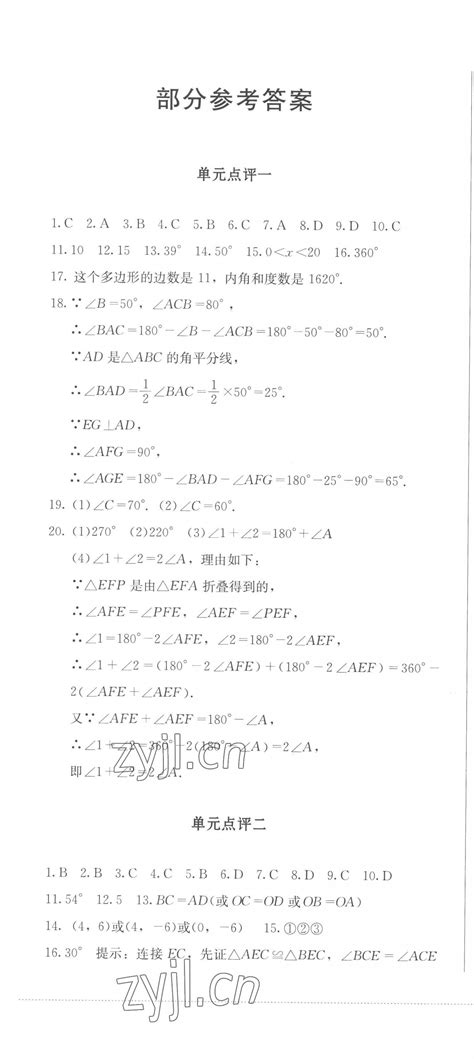 部分参考答案
单元点评一
1.C 2.A 3.B 4.C 5.B 6.C 7.A 8.D 9.D 10.C
11.10 12.15 13.39° 14.50° 15.0<x<20 16.360°
17. 这个多边形的边数是11，内角和度数是1620°.
18. ∵∠B=50°，∠ACB=80°，
∴∠BAC=180°-∠B-∠ACB=180°-50°-80°=50°.
∵AD是△ABC的角平分线，
∴∠BAD=1/2∠BAC=1/2×50°=25°.
∵EG⊥AD，
∴∠AFG=90°，
∴∠AGE=180°-∠BAD-∠AFG=180°-25°-90°=65°.
19. (1)∠C=70°. (2)∠C=60°.
20. (1)270° (2)220° (3)∠1+∠2=180°+∠A
(4)∠1+∠2=2∠A，理由如下：
∵△EFP是由△EFA折叠得到的，
∴∠AFE=∠PFE，∠AEF=∠PEF，
∴∠1=180°-2∠AFE，
∴∠1+∠2=(180°-2∠AFE)+(180°-2∠AEF)=360°-
2(∠AFE+∠AEF).
又∵∠AFE+∠AEF=180°-∠A，
∴∠1+∠2=360°-2(180°-∠A)=2∠A，
即∠1+∠2=2∠A.
zyjl.cn
单元点评二
1.B 2.B 3.C 4.C 5.B 6.D 7.C 8.D 9.C 10.D
11.54° 12.5 13.BC=AD(或OC=OD或OB=OA)
14. (4，6)或(4，-6)或(0，-6) 15.①②③
16.30° 提示：连接EC，先证△AEC≌△BEC，∠BCE=∠ACE
zyjl.cn